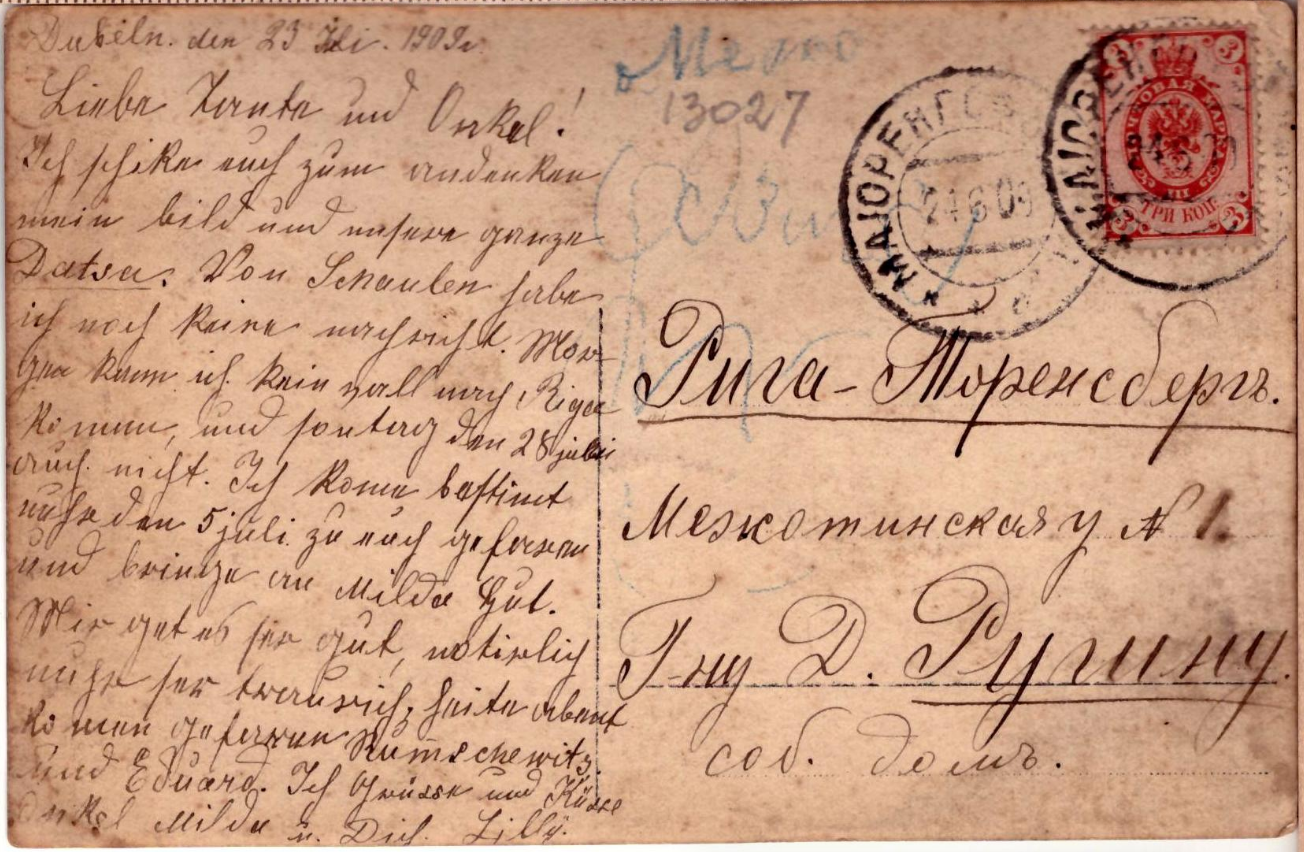 Dubeln. den 23 Juli. 1909.
Liebe Tante und Onkel!
Ich schike euch zum andenken
mein bild und unsere ganze
Datsa. Von Schaulen habe
ich noch keine nachricht. Mor-
gen kann ich kein vall nach Riga
komen, und sontag den 28 juli
auch nicht. Ich kome bestimt
nuhr den 5 juli zu euch gefaren
und bringe an Milda Hut.
Mir get es ser gut, notirlich
nuhr ser traurich, heite abent
komen gefarren Rumschewitz
und Eduard. Ich Grüsse und Küsse
Onkel Milda u. Dich. Lilly.
13027
МАІОРЕНГОФ
24 6 09
МАІОРЕНГОФ
ПОЧТОВАЯ МАРКА
3
3
3
3
ТРИ КОП.
Рига-Торенсбергъ.
Межотинская у № 1.
Г-ну Д. Ругину.
соб. домъ.